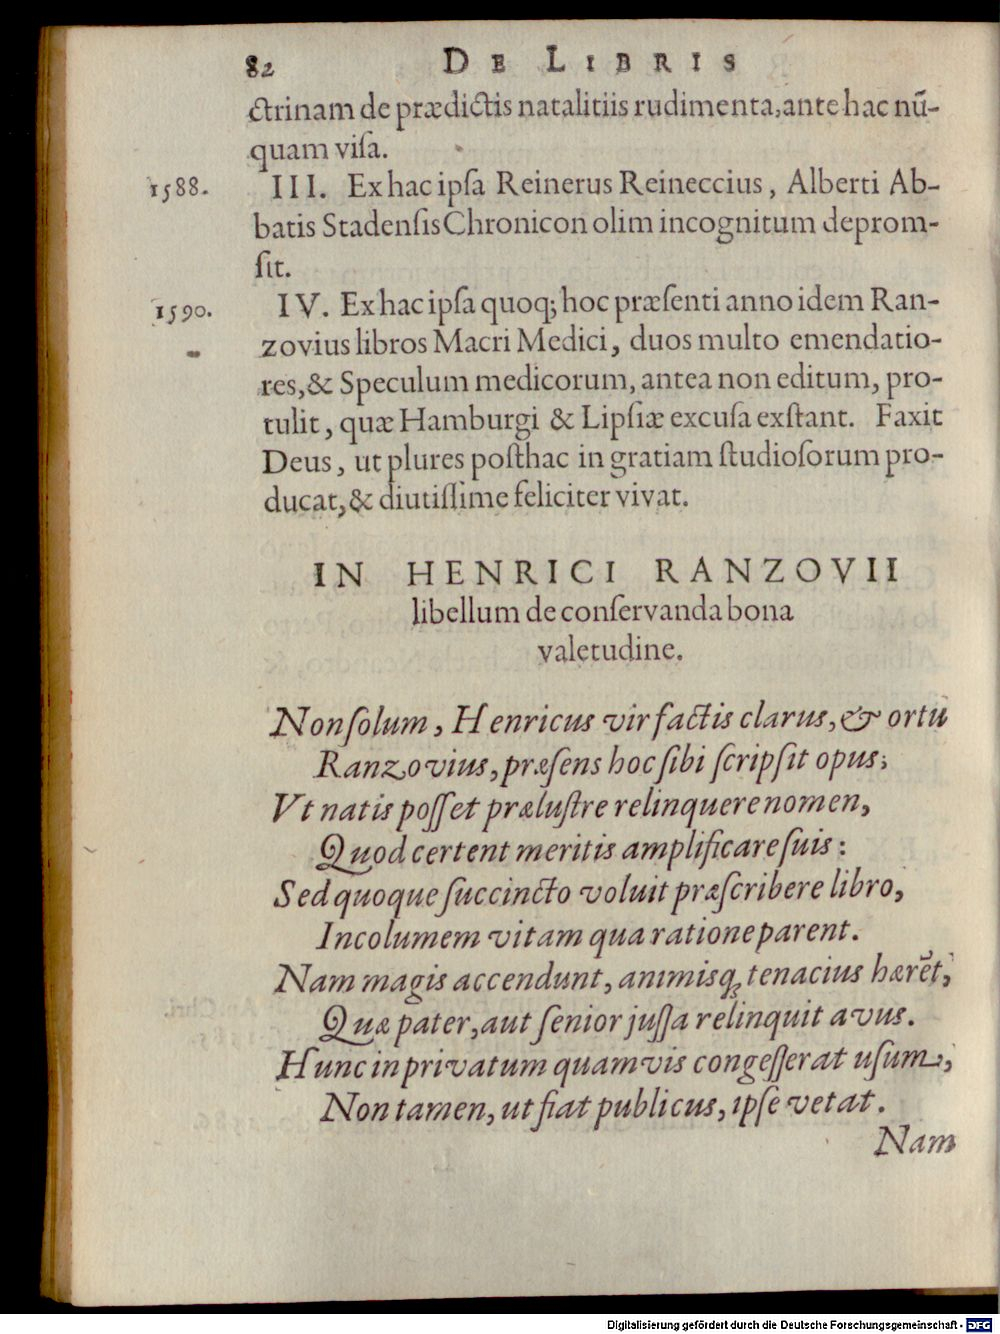 82 DE LIBRIS
ctrinam de prædictis natalitiis rudimenta, ante hac nū-
quam viſa.
1588. III. Ex hac ipſa Reinerus Reineccius, Alberti Ab-
batis Stadenſis Chronicon olim incognitum deprom-
ſit.
1590. IV. Ex hac ipſa quoq; hoc præſenti anno idem Ran-
zovius libros Macri Medici, duos multo emendatio-
res, & Speculum medicorum, antea non editum, pro-
tulit, quæ Hamburgi & Lipſiæ excuſa exſtant. Faxit
Deus, ut plures poſthac in gratiam ſtudioſorum pro-
ducat, & diutiſſime feliciter vivat.
IN HENRICI RANZOVII
libellum de conſervanda bona
valetudine.
Non ſolum, Henricus vir factis clarus, & ortu
Ranzovius, præſens hoc ſibi ſcripſit opus;
Vt natis poſſet præluſtre relinquere nomen,
Quod certent meritis amplificare ſuis:
Sed quoque ſuccincto voluit præſcribere libro,
Incolumem vitam qua ratione parent.
Nam magis accendunt, animisq; tenacius hærēt,
Quæ pater, aut ſenior juſſa relinquit avus.
Hunc in privatum quamvis congeſſerat uſum,
Non tamen, ut fiat publicus, ipſe vetat.
Nam
Digitalisierung gefördert durch die Deutsche Forschungsgemeinschaft - DFG